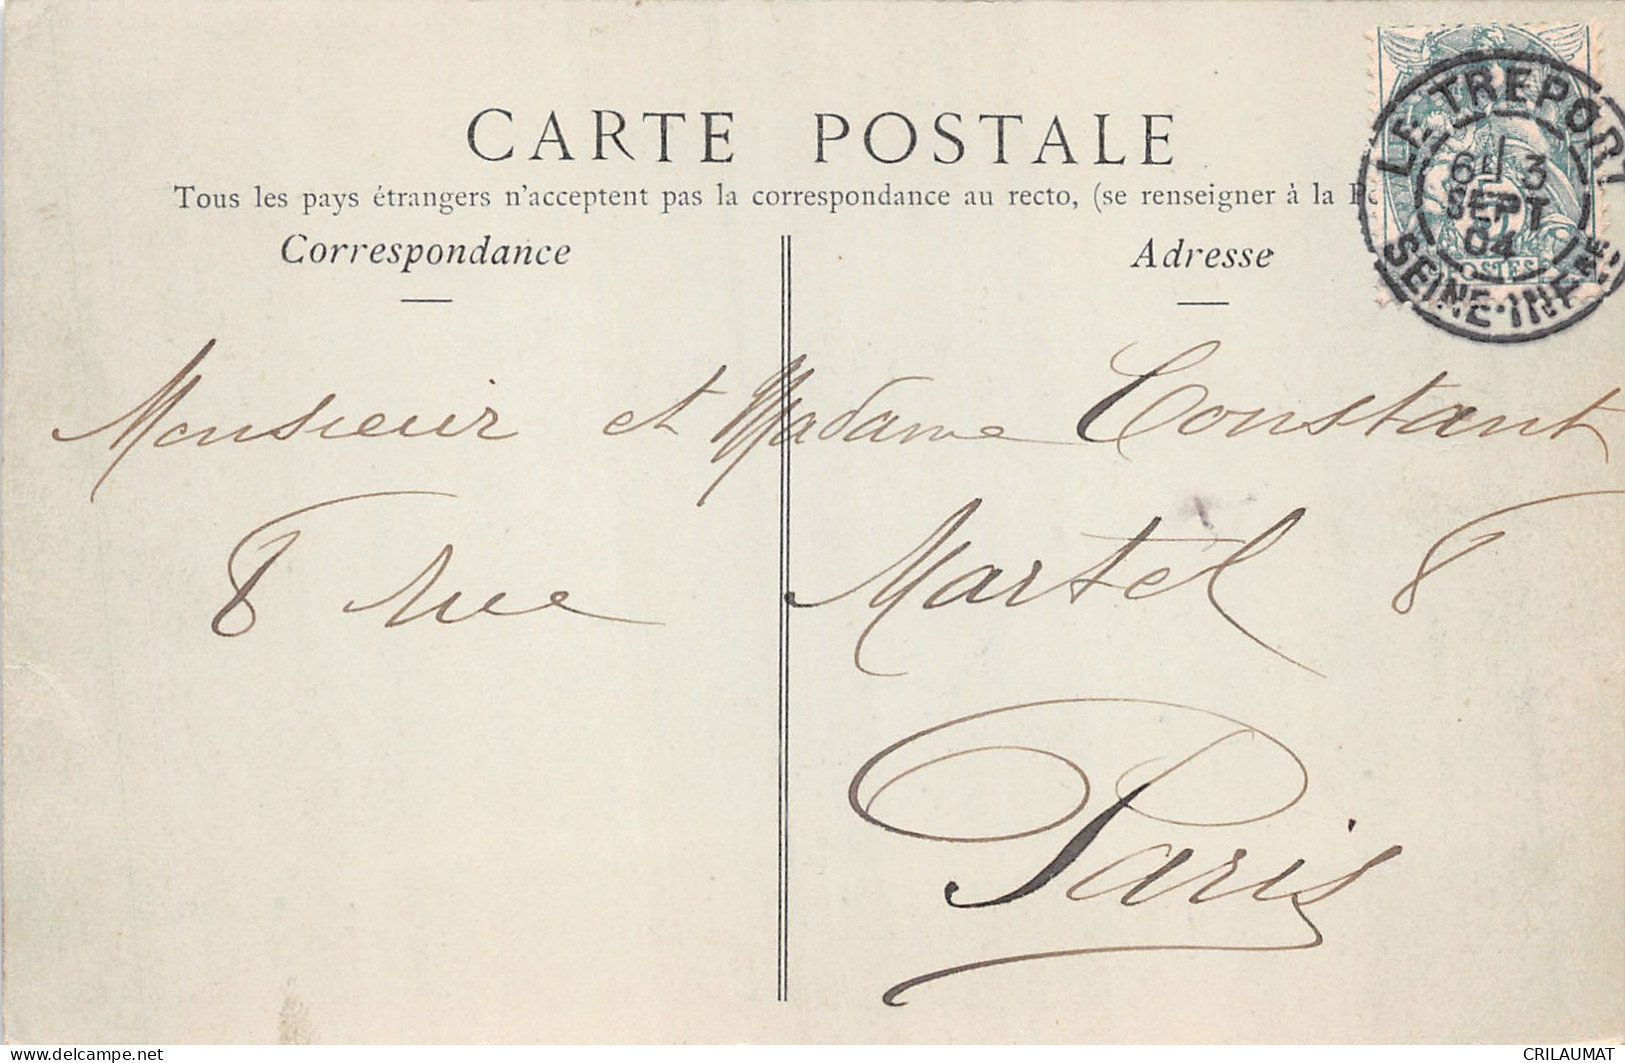 CARTE POSTALE
Tous les pays étrangers n'acceptent pas la correspondance au recto, (se renseigner à la
Correspondance
Adresse
LE TREPORT
3
SEPT
04
SEINE-INFRE
POSTES
Monsieur et Madame Constant
8 Rue Martel 8
Paris
delcampe.net
CRILAUMAT